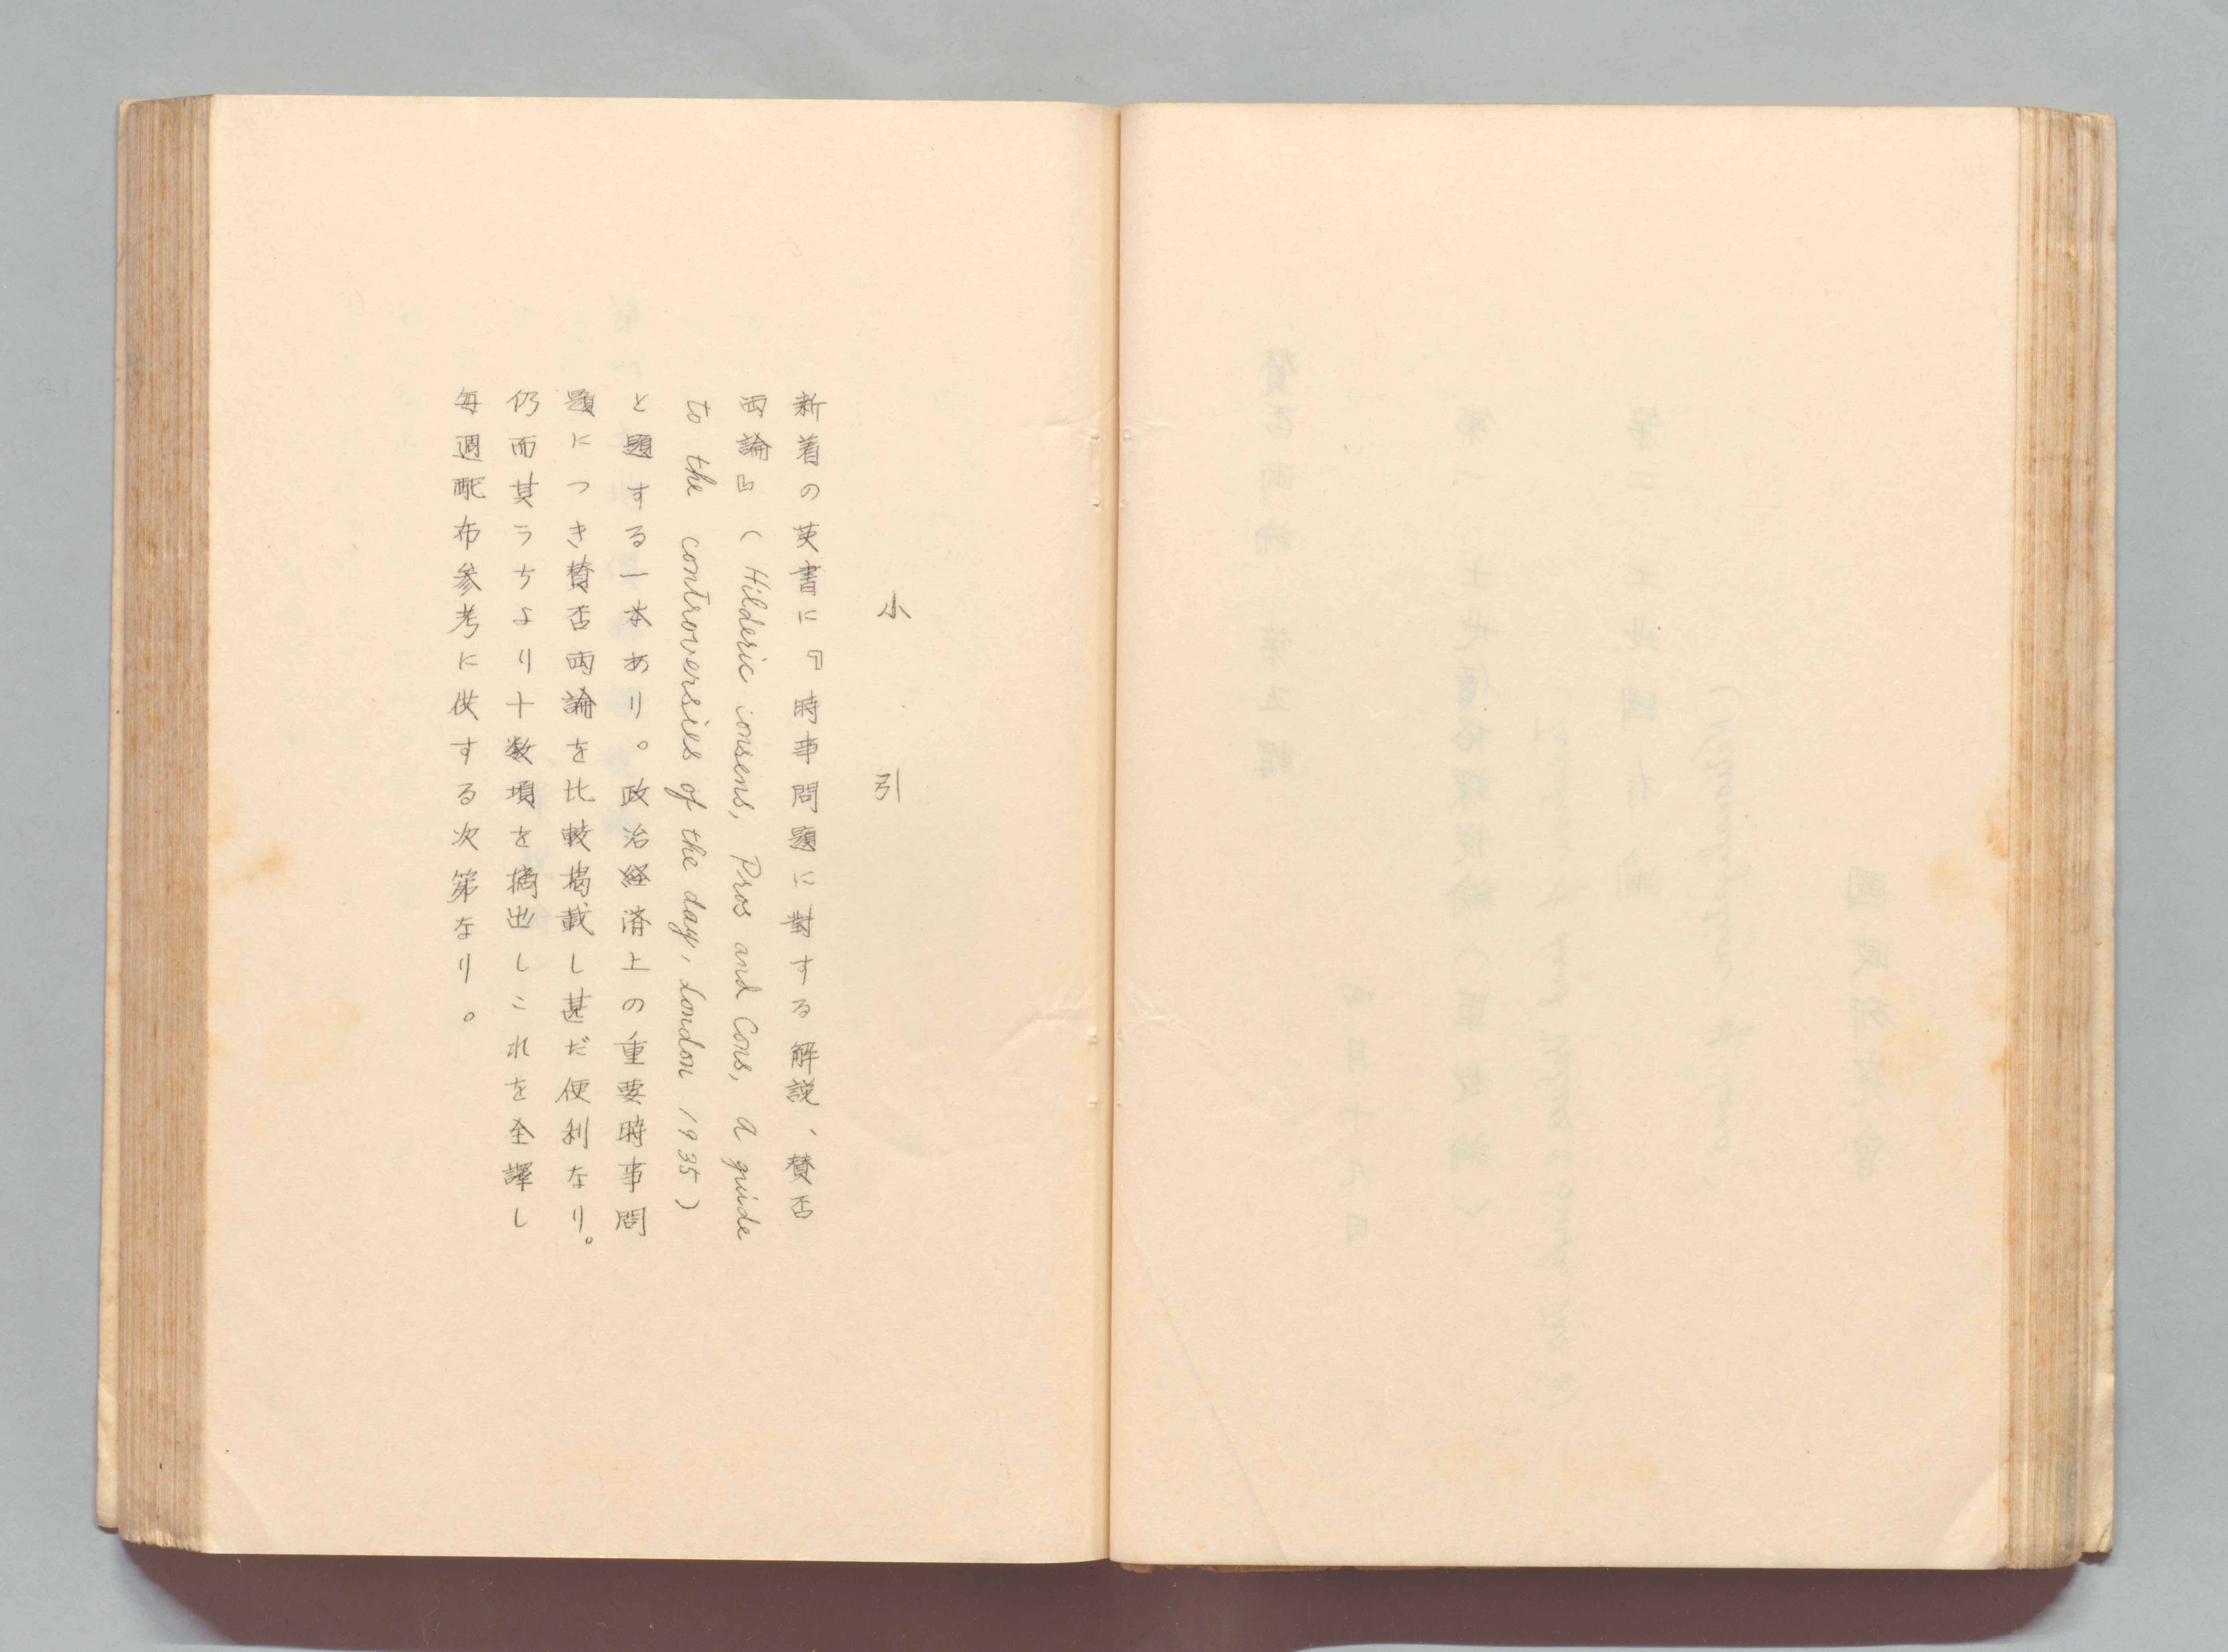 小引
新着の英書に『時事問題に對する解説、賛否
両論』(Hilderic consens, Pros and Cons, a guide
to the controversies of the day, London 1935)
と題する一本あり。政治経済上の重要時事問
題につき賛否両論を比較掲載し甚だ便利なり。
仍而其うちより十数項を摘出しこれを全譯し
毎週配布参考に供する次第なり。